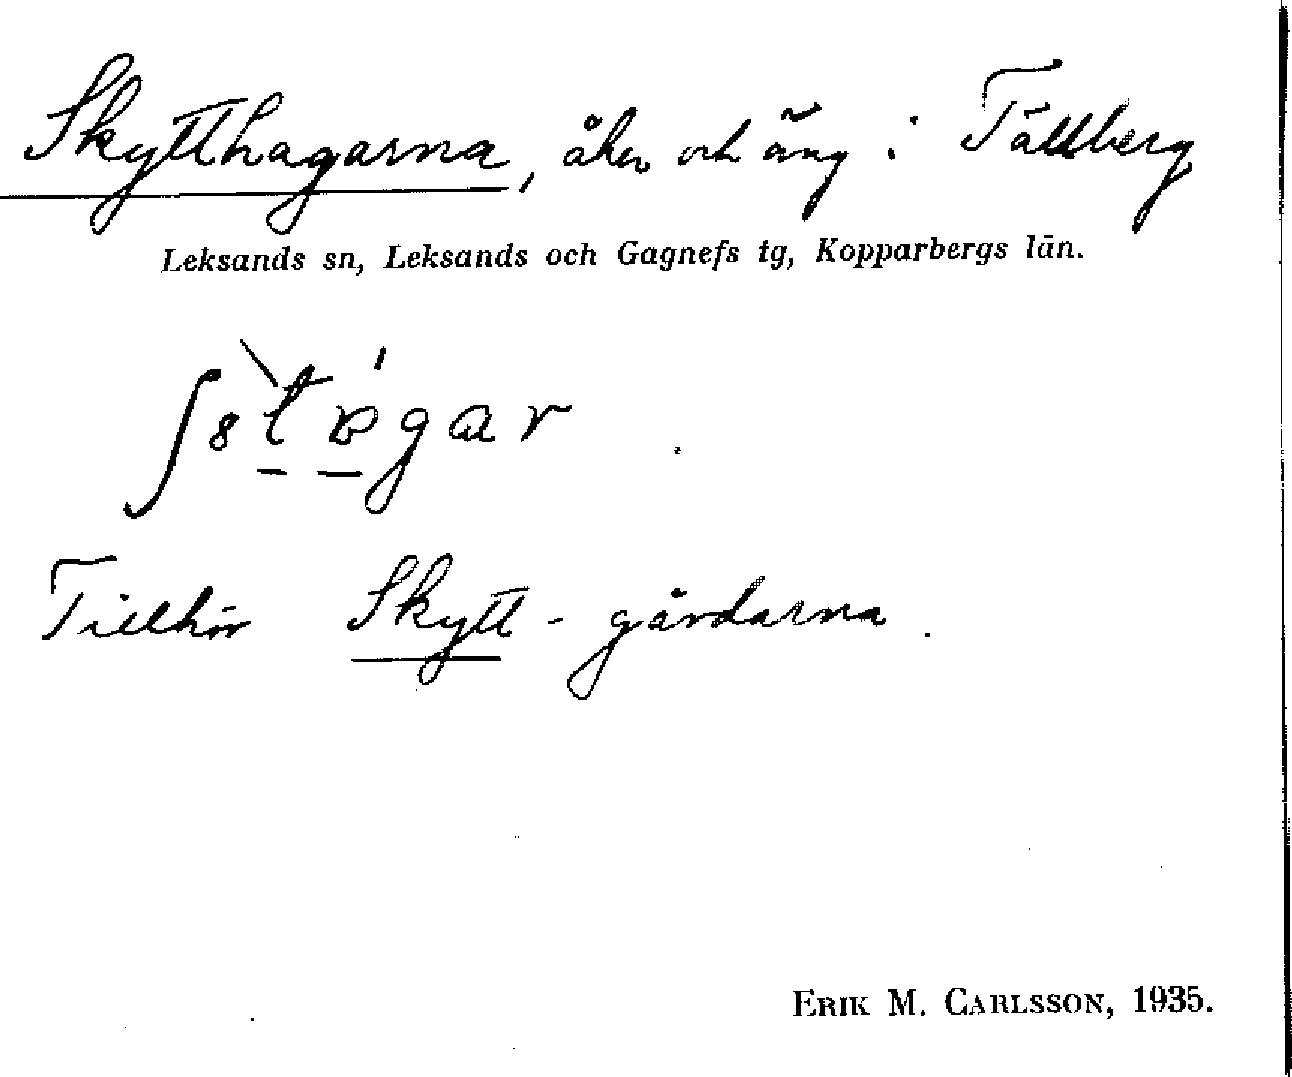 Skytthagarna, åker och äng i Tällberg
Leksands sn, Leksands och Gagnefs tg, Kopparbergs län.
Tillhör Skytt-gårdarna.
ERIK M. CARLSSON, 1935.